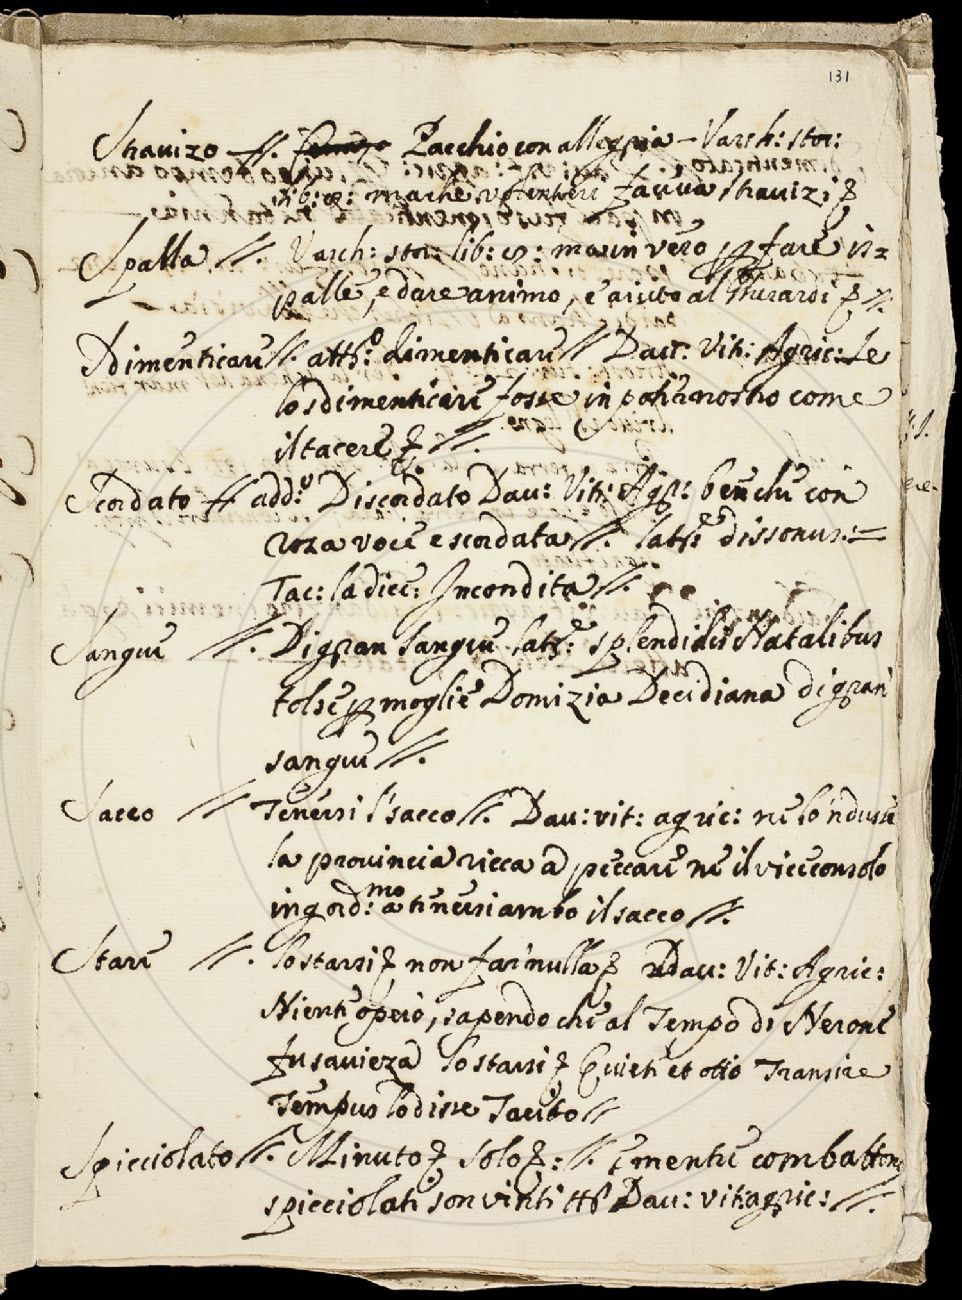 131
Stravizo //. Pacchio con allegria – Varch: stor:
lib: 9: ma che si facea stravizi
Spalla //. Varch: stor: lib: 9: ma in vero p fare is=
palle, e dare animo, e aiuto al Burardi //.
Dimenticare //. att:o dimenticare // Dav: Vit: Agric: Se
lo sdimenticare fosse in poter nostro come
il tacere //.
Scordato // add:o Discordato Dav: Vit: Agr: benche con
roza voce e scordata //. lat: dissonus: =
Tac: la dice Incondita //.
Sangue //. Di gran sangue lat:e splendidis Natalibus
tolse p moglie Domizia Decidiana di gran
sangue //.
Sacco // Tenersi 'l sacco //. Dav: vit: agric: ne lo 'ndusse
la provincia ricca a peccare ne il viceconsolo
ingord:mo a tenersi ambo il sacco //.
Stare //. lo starsi non far nulla Dav: Vit: Agric:
Niente operò, sapendo che al Tempo di Nerone
fu savieza lo starsi Quiete et otio Transire
Tempus lo disse Tacito //
Spicciolato //. Minuto solo: //. e mentre combatton
spicciolati son vinti tti Dav: vit: agric: //.